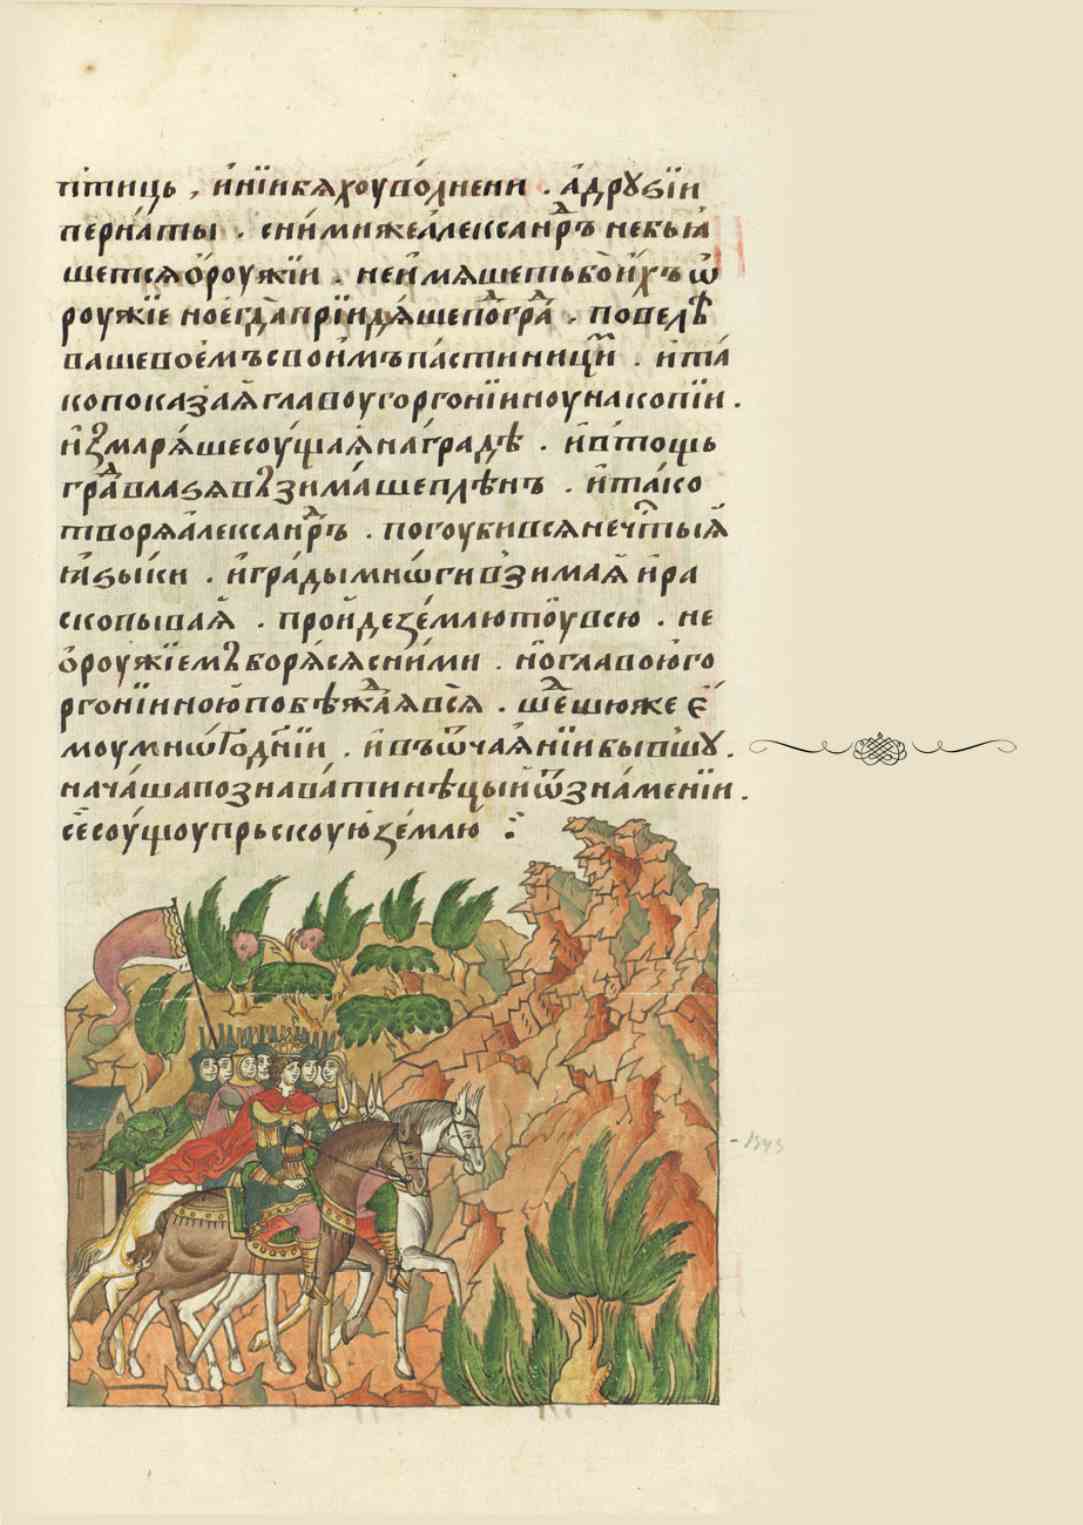 птиць, и҆нїи бѧхоу волнени. а҆дрꙋѕїи
перна́ты. сни́мижеа҆леѯаⷩ҇дръ небьꙗ҆
шетсѧ ѻ҆роужїи. неи҆мѧшетьбои҆хъ ѡ҆
роужїе ноегдапрїидѧ́шепо́граⷣ. повелѣ
вашевое́мъсвои҆мъпа́стиницⷨи. и҆та́
копоказа́ѧ҆главоугоргонїиноунакопїи.
и҆ꙁмарѧ́шесоу́щаѧ҆на́градѣ. и҆втощь
граⷣвлаѕѧвъзима́шеплѣнъ. и҆та́ко
творѧа҆леѯаⷩ҇дръ. погоубивсѧнечⷭ҇тыѧ҆
ꙗ҆ѕы́ки. и҆гра́дымнѡ́гивзимаѧ҆ и҆ра
скопываѧ҆. про́йдеꙁе́млютоу҆всю. не
ѻ҆роужїемъборѧ́сѧсни́ми. но҆главоюго
ргонїинноюпобѣжаⷣаѧ҆всѧ҆. шеⷣшюже е҆
моумнѡ́годнїи. и҆въѿчаѧ҆нїибывшꙋ.
нача́шапознава́тинѣ́цыи҆ѿзна́менїи.
се҆соу́щоупрьскоую҆ꙁе́млю